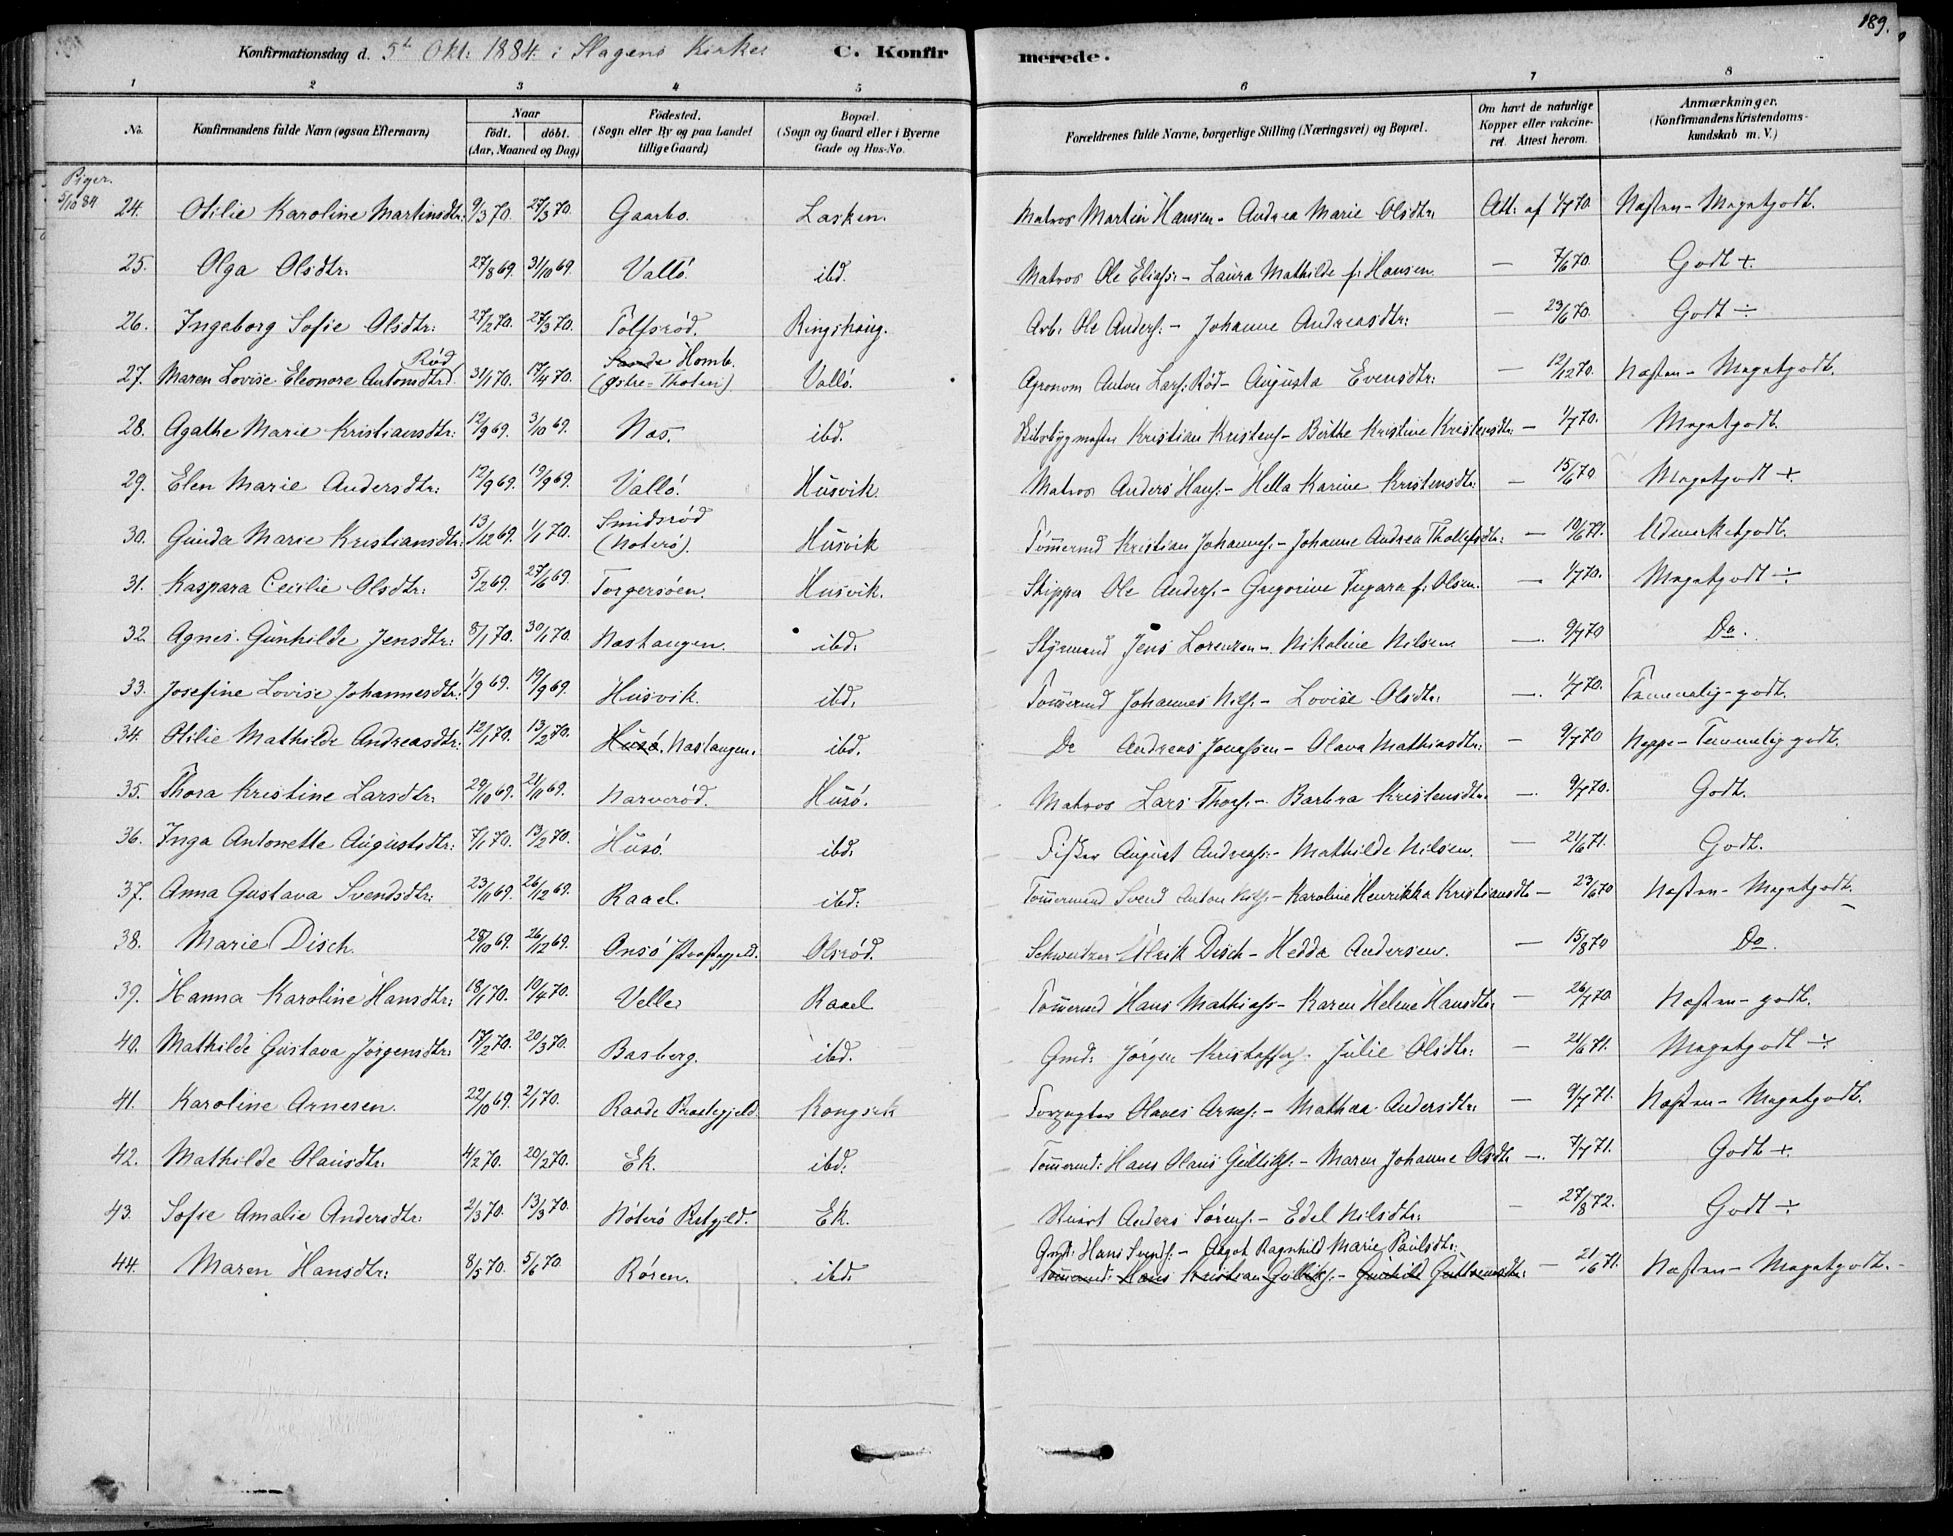 189.
Konfirmationsdag d. 5t Okt. 1884. i Slagens Kirke C. Konfirmerede.
1 2 3 4 5 6 7 8
No. Konfirmandens fulde Navn (ogsaa Efternavn) Naar født. døbt. (Aar, Maaned og Dag) Fødested. (Sogn eller By og paa Landet tillige Gaard) Bopæl. (Sogn og Gaard eller i Byerne Gade og Hus-No. Forældrenes fulde Navne, borgerlige Stilling (Næringsvei) og Bopæl. Om havt de naturlige Kopper eller vakcineret. Attest herom. Anmærkninger. (Konfirmandens Kristendomskundskab m. V.)
Piger.
5/10 84
24. Otilie Karoline Martinsdtr: 9/3 70. 27/3 70. Gaarbo. Lasken. Matros Martin Hansen - Andrea Marie Olsdtr: Att: af 1/7 70. Næsten - Megetgodt.
25. Olga Olsdtr: 27/8 69. 31/10 69. Vallö. ibd. Matros Ole Eliass: - Laura Mathilde f: Hansen — 7/6 70. Godt +.
26. Ingeborg Sofie Olsdtr: 27/2 70. 27/3 70. Tolfsrød. Ringshaug. Arb: Ole Anders: - Johanne Andreasdtr: — 23/6 70. Godt ÷
27. Maren Lovise Eleonore Antonsdtr: Rød 31/1 70. 17/4 70. Homb. (Østre-Thoten) Vallö. Agronom Anton Lars: Rød - Augusta Evensdtr: — 12/12 70. Næsten - Megetgodt.
28. Agathe Marie Kristiansdtr: 12/9 69. 3/10 69. Nes. ibd. Skibsbygmester Kristian Kristens: - Birthe Kristine Kristensdtr: — 1/7 70. Megetgodt.
29. Elen Marie Andersdtr: 12/9 69. 19/9 69. Vallö. Husvik. Matros Anders Hans: - Hella Karine Kristensdtr: — 15/6 70. Megetgodt +
30. Gunda Marie Kristiansdtr: 13/12 69. 1/1 70. Smidsrød (Noterö). Husvik Tömermd Kristian Johannes: - Johanne Andrea Thollefsdtr: — 10/6 71. Udmerketgodt.
31. Kaspara Cecilie Olsdtr: 5/2 69. 27/6 69. Torgersøen. Husvik. Skipper Ole Anders: - Gregorine Ingara f: Olsen. — 1/7 70. Megetgodt ÷
32. Agnes Gunhilde Jensdtr: 8/1 70. 30/1 70. Nestangen. ibd. Styrmand Jens Lorenzen - Nikoline Nilsen. — 9/7 70 Do.
33. Josefine Lovise Johannesdtr: 1/9 69. 19/9 69. Husvik. ibd. Tömermd Johannes Nils: - Lovise Olsdtr: — 1/7 70. Temmelig-godt.
34. Otilie Mathilde Andreasdtr: 12/1 70. 13/2 70. Husö. Nestangen. ibd. Do Andreas Jonassen - Olava Mathiasdtr: — 9/7 70 Neppe - Temmelig godt.
35. Thora Kristine Larsdtr: 29/10 69. 21/11 69. Narverød. Husö. Matros Lars Thors: - Barbra Kristensdtr: — 9/7 70. Godt.
36. Inga Antonette Augustsdtr: 7/1 70. 13/2 70. Husö. ibd. Fisker August Andreass: - Mathilde Nilsen. — 21/6 71. Godt.
37. Anna Gustava Svendsdtr: 23/11 69. 26/12 69. Raael. ibd: Tömermand Svend Anton Nils: - Karoline Henrikka Kristiansdtr — 23/6 70 Næsten - Megetgodt.
38. Marie Disch. 28/10 69. 26/12 69. Onsö Præstegjeld. Olsrød. Schweitzer Ulrik Disch - Hedda Andersen. — 15/8 70 Do.
39. Hanna Karoline Hansdtr: 18/1 70. 10/4 70. Velle. Raael Tömermd Hans Mathiass: - Karen Helene Hansdtr: — 26/7 70. Næsten - godt.
40. Mathilde Gustava Jørgensdtr: 17/2 70. 20/3 70. Basberg. ibd. Gmd: Jørgen Kristoffers: Julie Olsdtr: — 21/6 71. Megetgodt ÷
41. Karoline Arnesen. 22/10 69. 2/1 70. Raade Præstegjeld Kongsek Forpagter Olaves Arnes: - Mathea Andersdtr: — 9/7 71. Næsten - Megetgodt.
42. Mathilde Olausdtr. 4/2 70. 20/2 70. Ek. ibd. Tömermd: Hans Olaus Gulliks: - Maren Johanne Olsdtr — 7/7 71. Godt +.
43. Sofie Amalie Andersdtr: 2/3 70. 13/3 70. Nöterö Prstgjld. Ek. Anders Sørens: - Edel Nilsdtr: — 27/8 72. Godt ÷
44. Maren Hansdtr: 8/5 70. 5/6 70. Røren. ibd. Gmd: Hans Svends: - Aagot Ragnhild Marie Paulsdtr:
Tömermd: Hans Kristian Gulliks: - Gunhild Guttormsdtr: — 21/6 71. Næsten - Megetgodt.